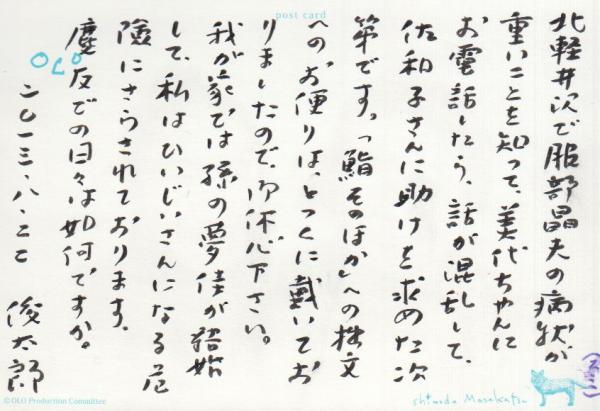 post card
北軽井沢で服部晶夫の病状が
重いことを知って、美代ちゃんに
お電話したら、話が混乱して、
佐和子さんに助けを求めた次
第です。「鮨そのほか」への
へのお便りは、とっくに戴いてお
りましたので、御休心下さい。
我が家では孫の夢佳が
して、私はひいじいさんになる危
険にさらされております。
OLO
塵反での日々は如何ですか。
二〇一三、八、二二 俊太郎
© OLO Production Committee
shimoda Masakatsu